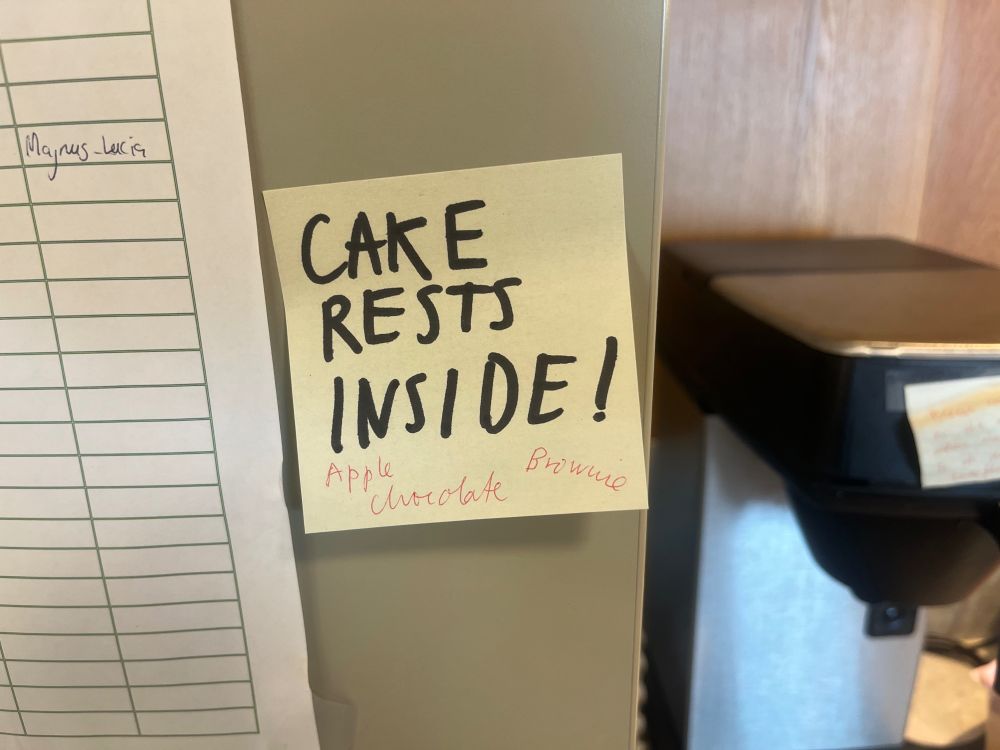 Magnus-Lucia
CAKE
RESTS
INSIDE!
Apple
chocolate
Brownie